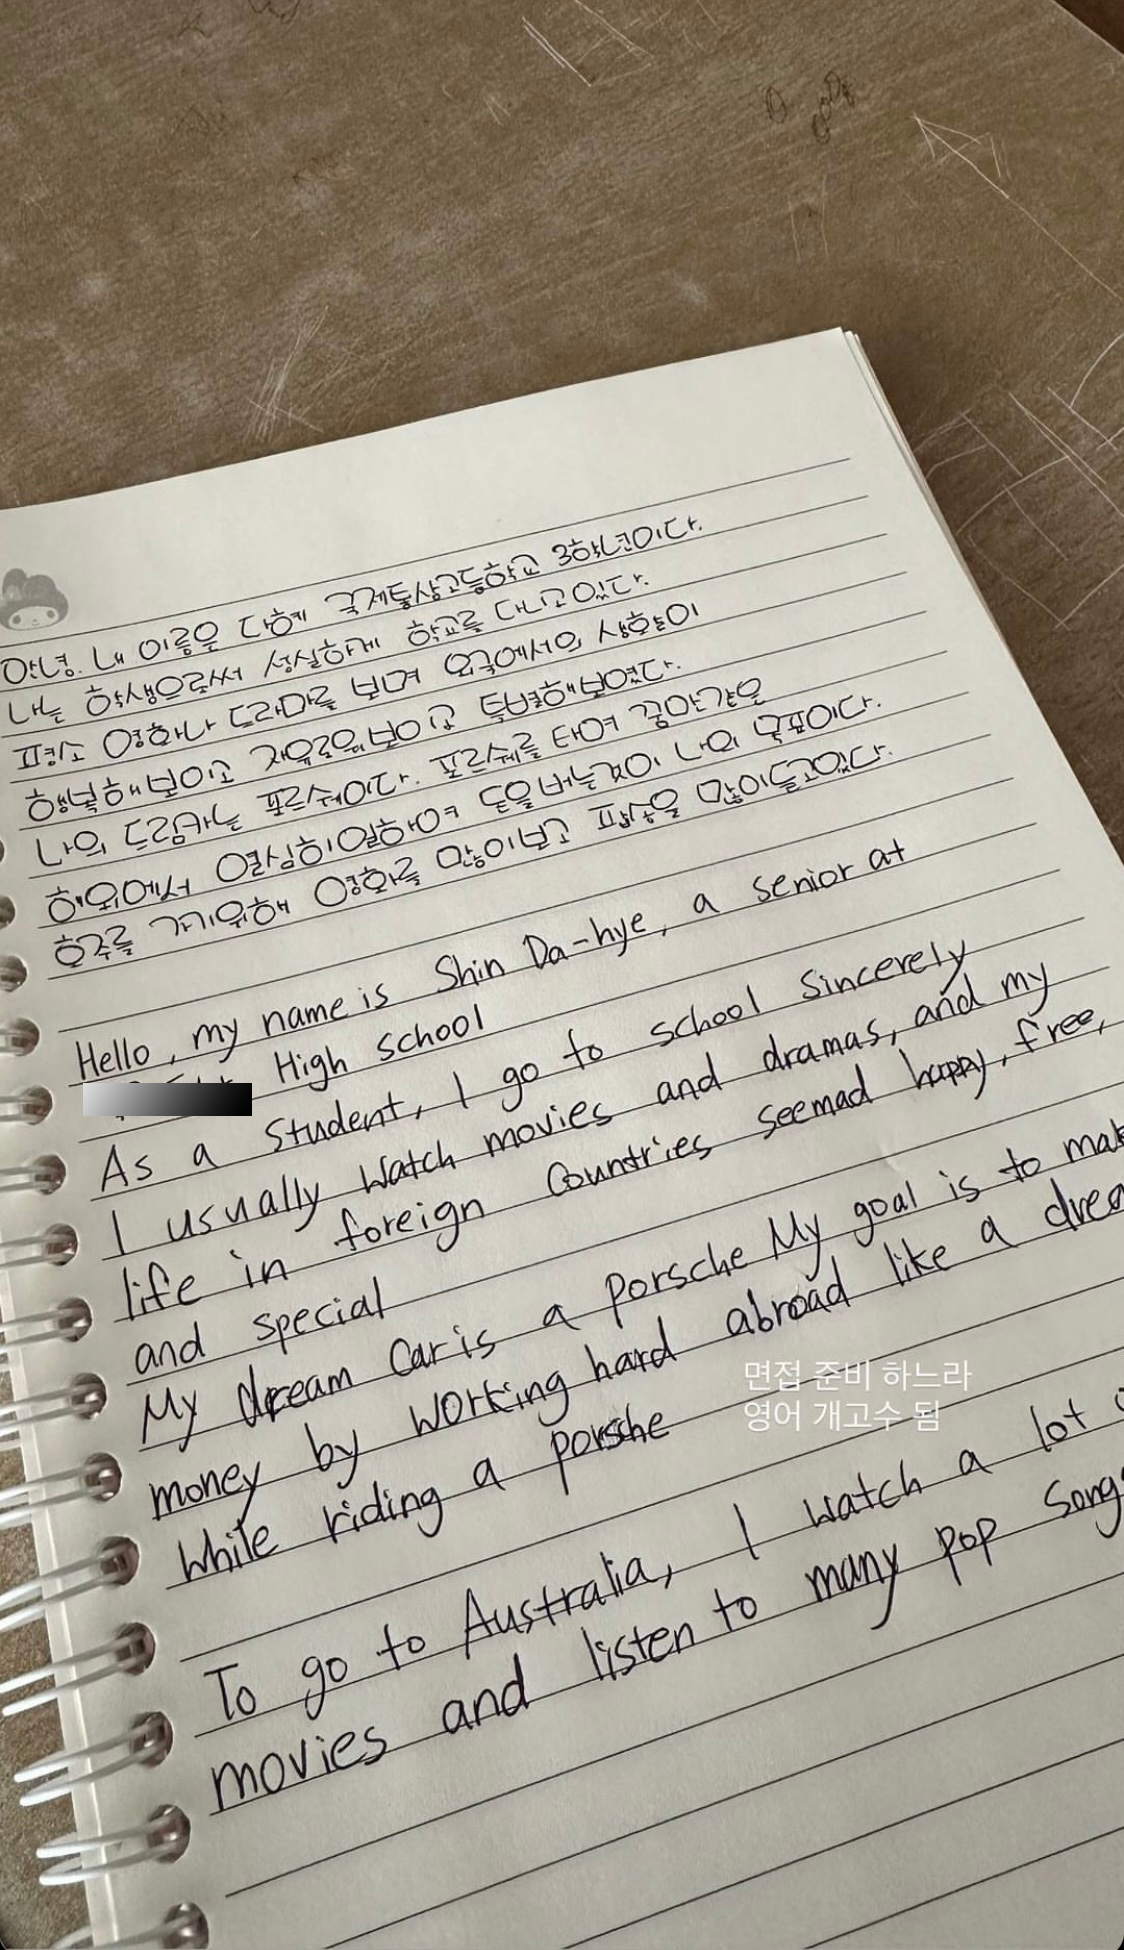 안녕. 내 이름은 다혜 국제통상고등학교 3학년이다.
나는 학생으로써 성실하게 학교를 다니고있다.
평소 영화나 드라마를 보며 외국에서의 생활이
행복해보이고 자유로워보이고 특별해보였다.
나의 드림카는 포르쉐이다. 포르쉐를 타며 꿈만같은
해외에서 열심히일하여 돈을버는것이 나의 목표이다.
호주를 가기위해 영화를 많이보고 팝송을 많이듣고있다.
Hello, my name is Shin Da-hye, a senior at
High school
As a student, I go to school sincerely
I usually watch movies and dramas, and my
life in foreign countries seemad happy, free,
and special
My dream car is a porsche My goal is to
money by working hard abroad like a
while riding a porsche
면접 준비 하느라
영어 개고수 됨
To go to Australia, I watch a lot
movies and listen to many pop